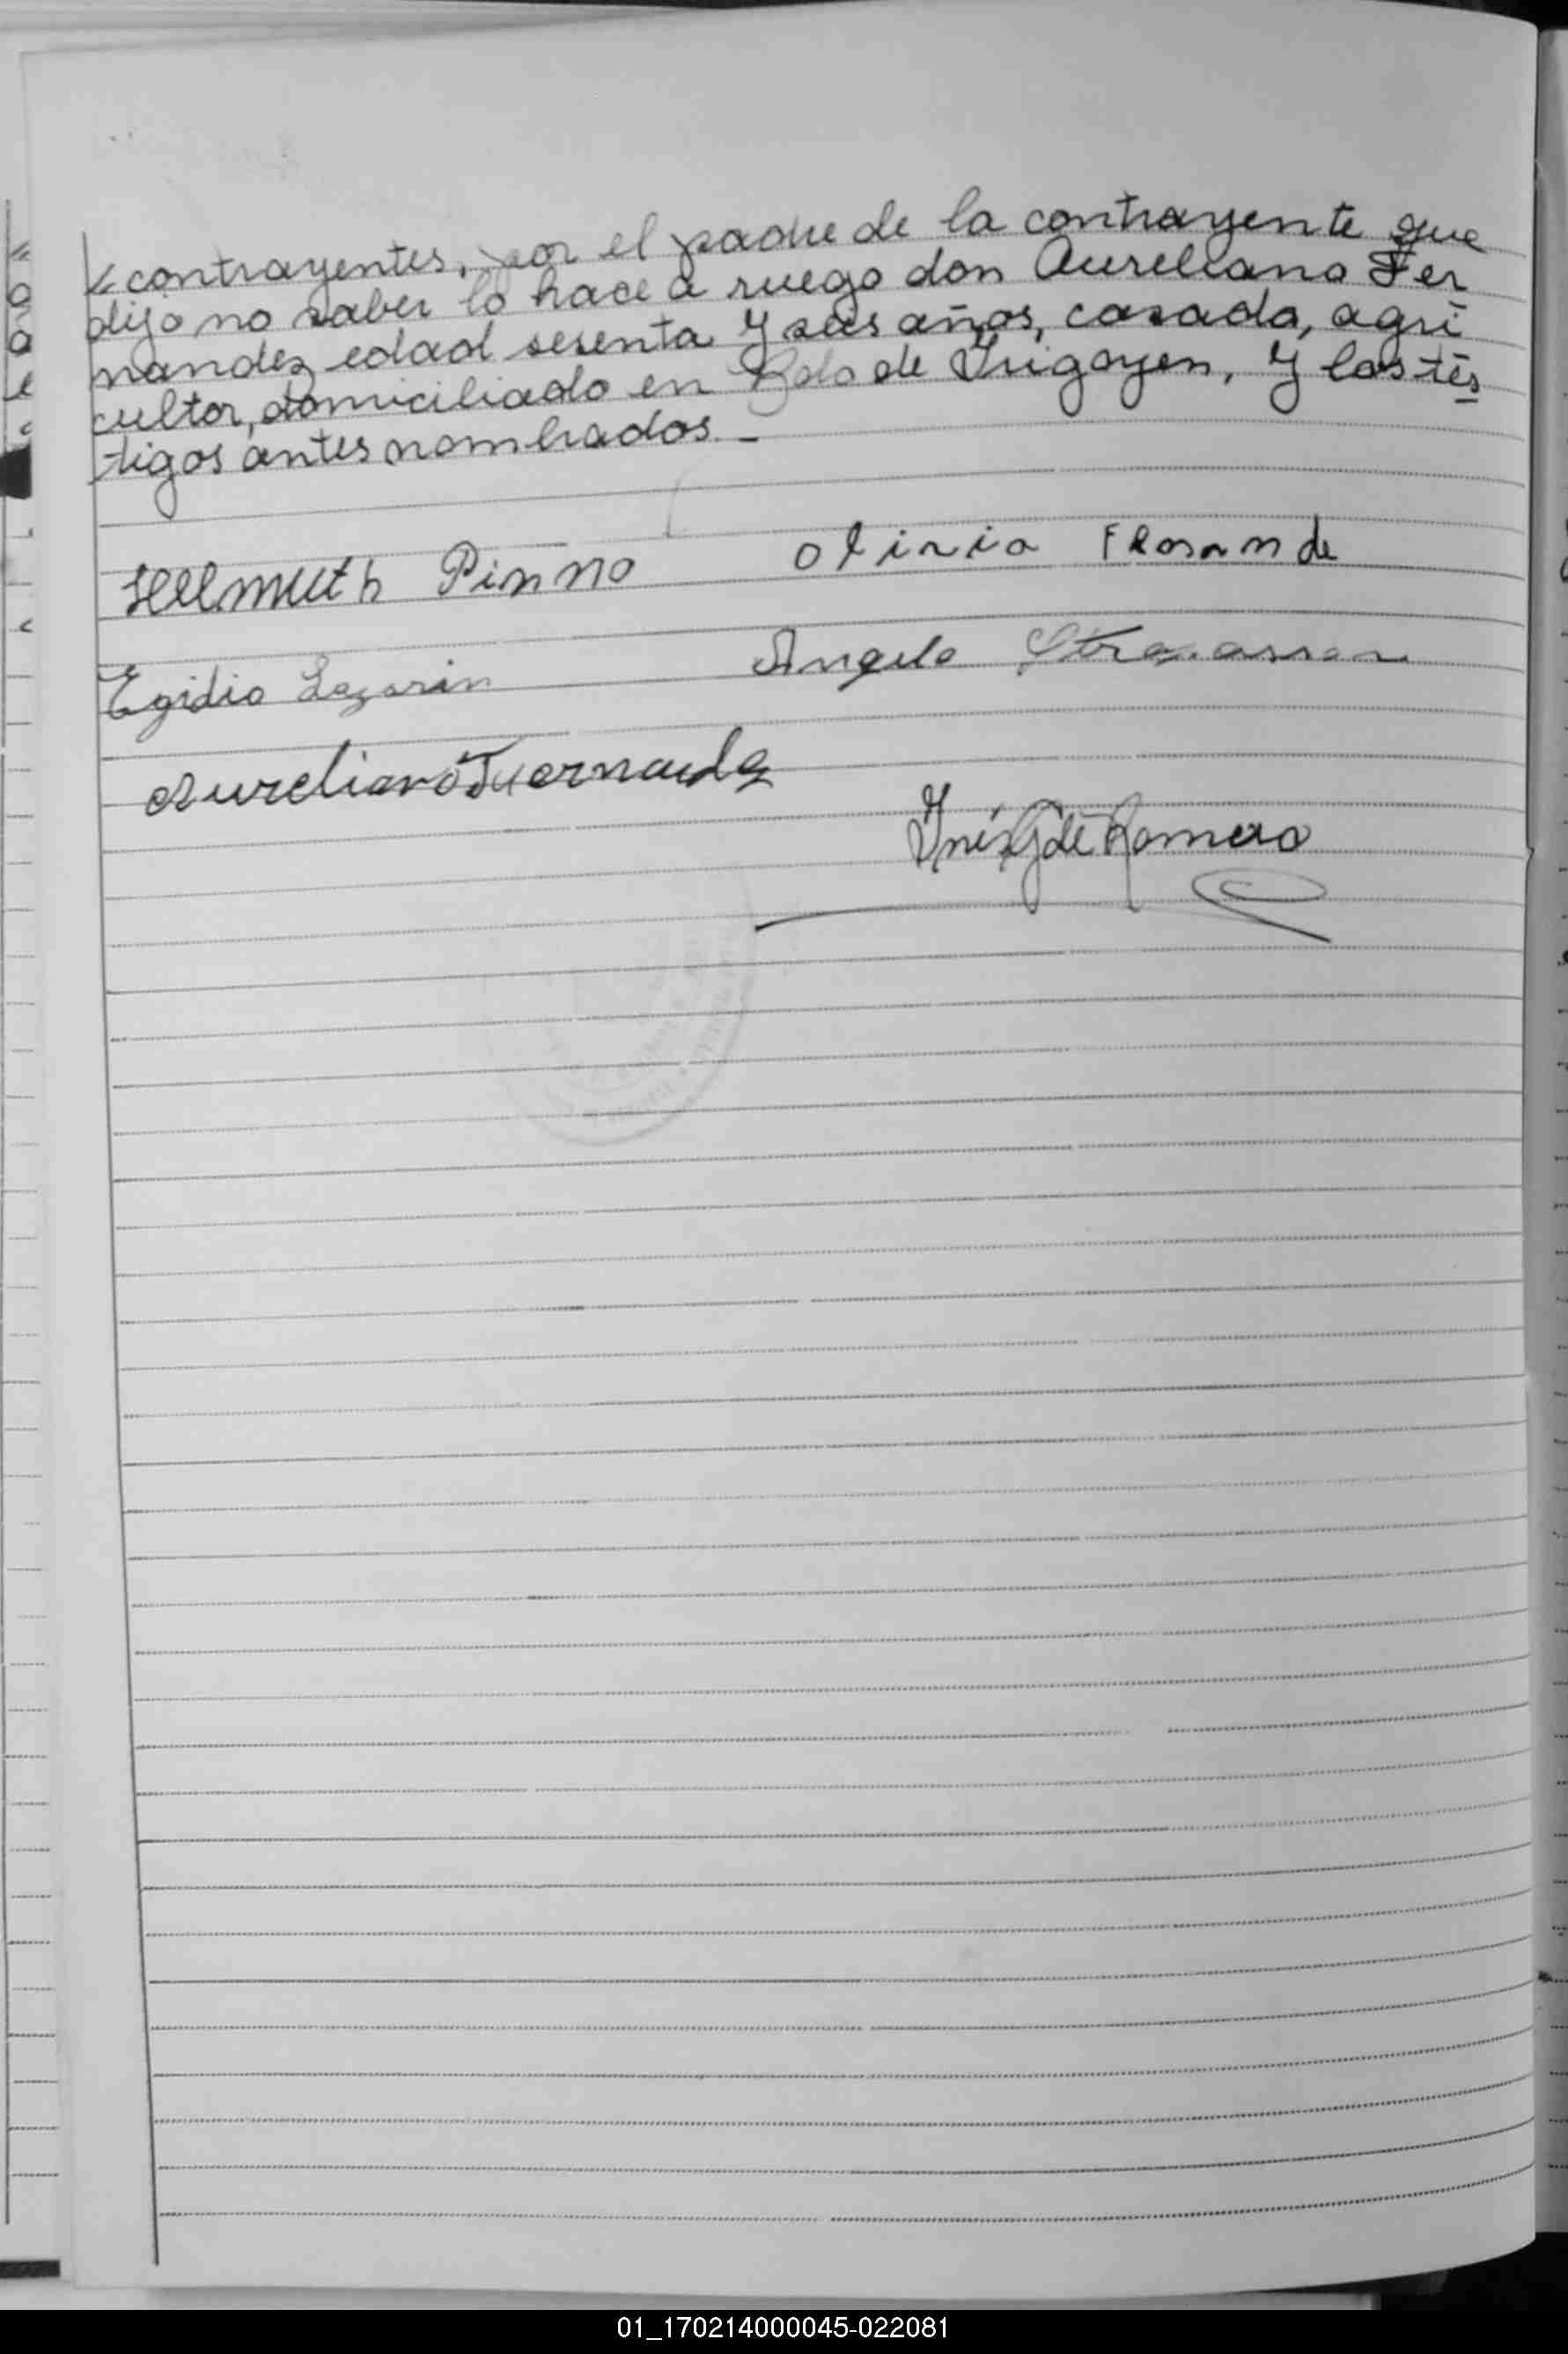 contrayentes, por el padre de la contrayente que
dijo no saber lo hace a ruego don Aureliano Fer
nandez edad sesenta y seis años, casado, agri
cultor, domiciliado en Bdo de Irigoyen, y los tes
tigos antes nombrados. -
Helmuth Pinno Olinia
Egidio Lazarin Angelo
Aureliano Fuernandez
Inés G de Romero
01_170214000045-022081